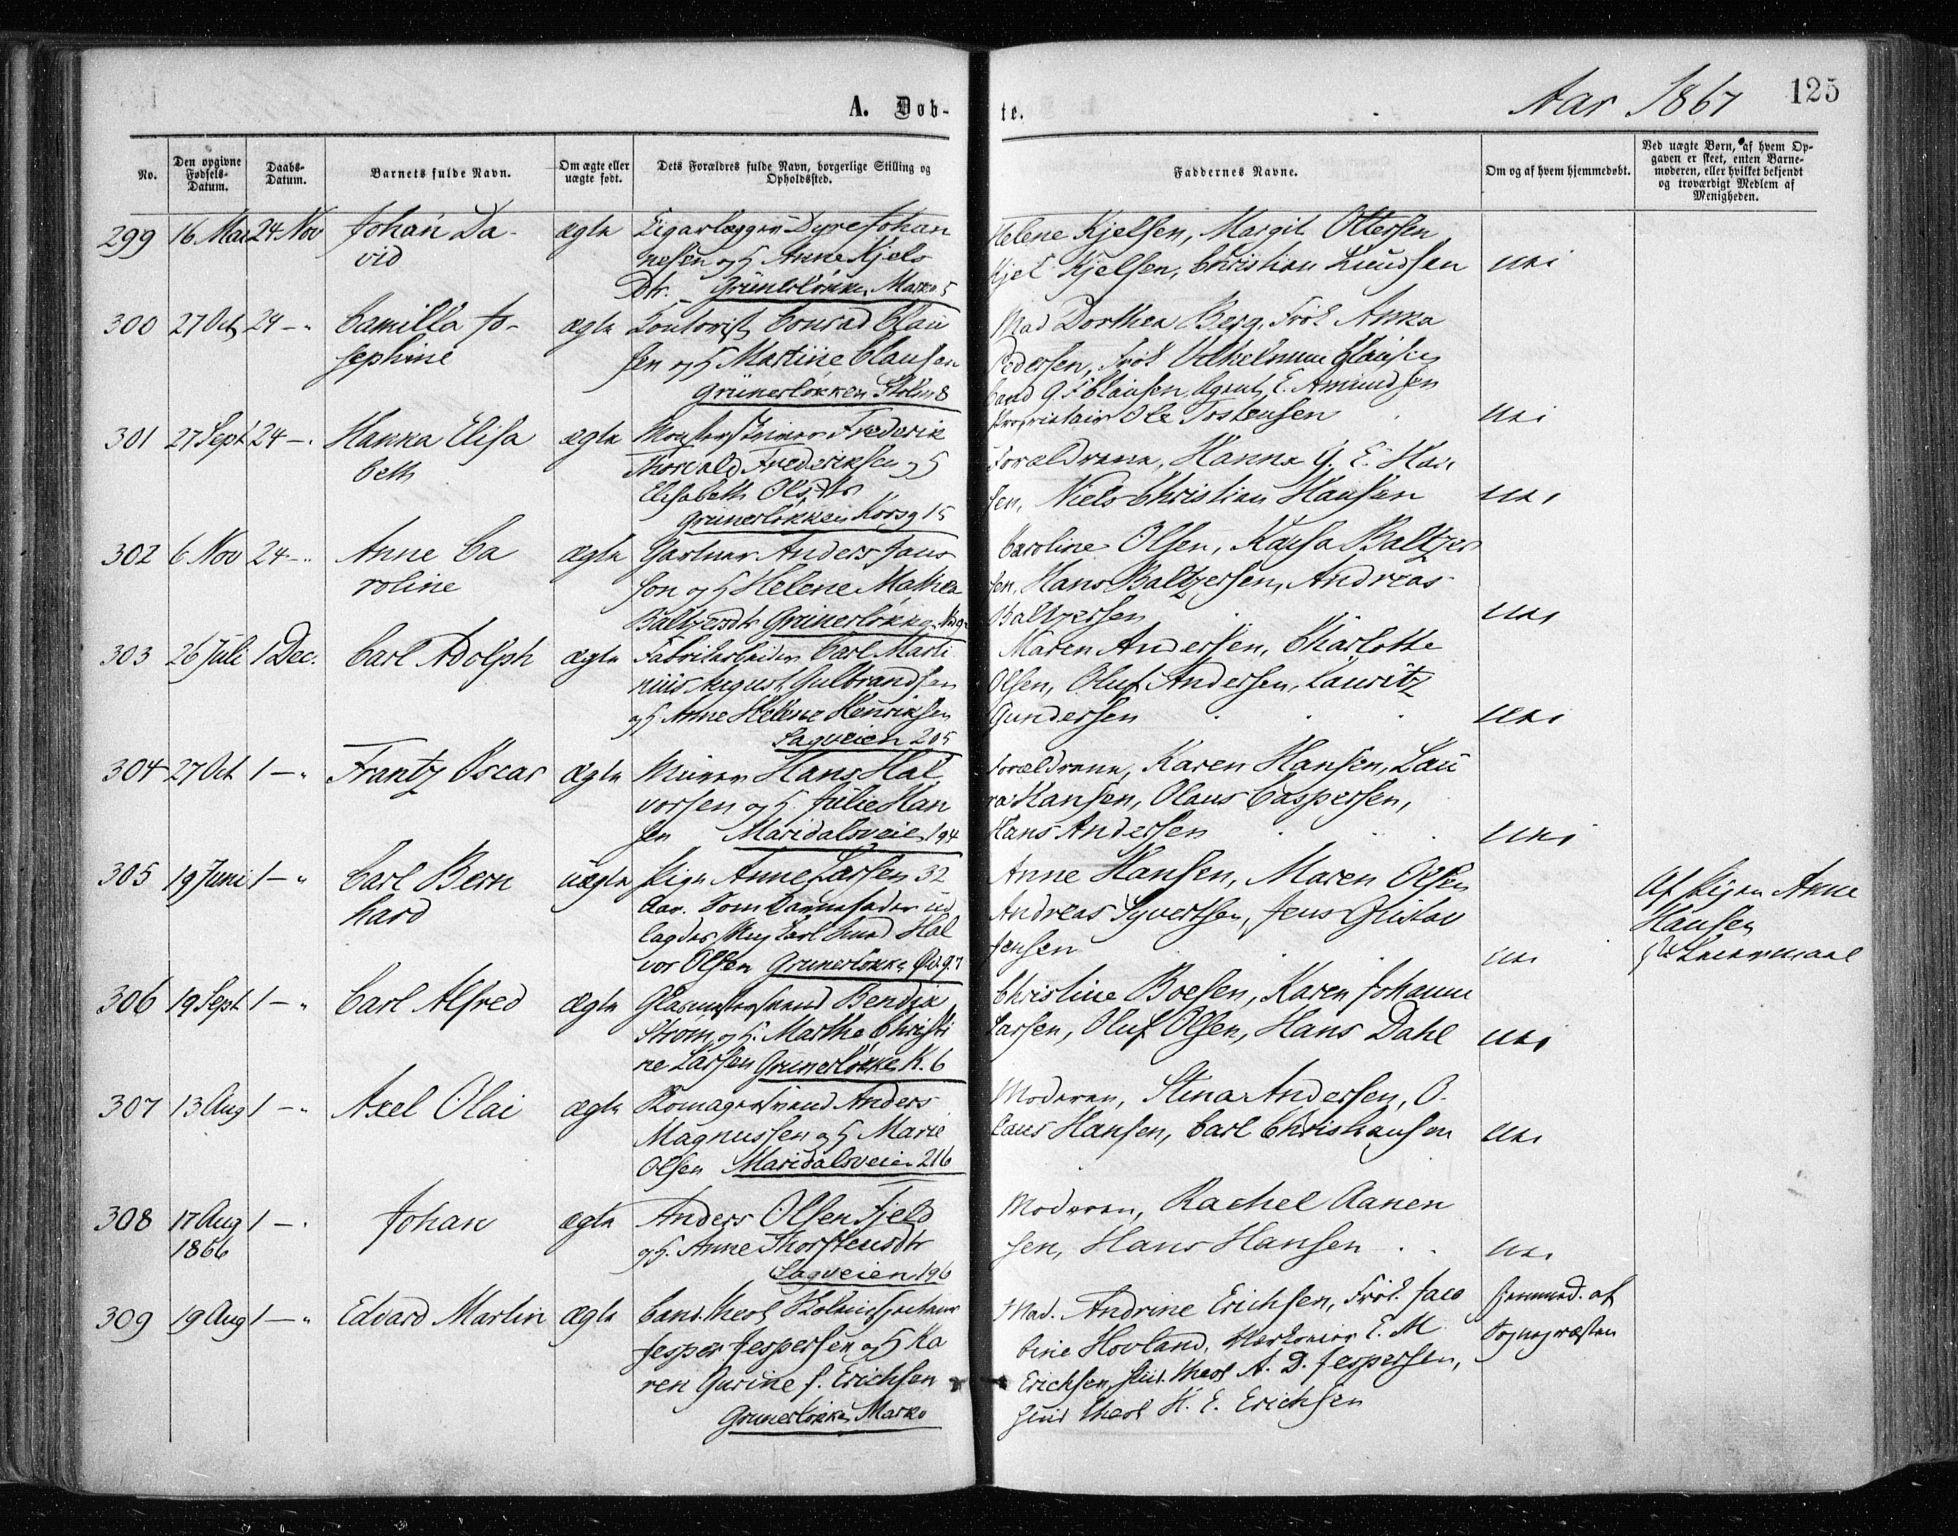 A. Døb-
te.
Aar 1867
125
No.
Den opgivne Fødsels-Datum.
Daabs-Datum.
Barnets fulde Navn.
Om ægte eller uægte født.
Dets Forældres fulde Navn, borgerlige Stilling og Opholdssted.
Faddernes Navne.
Om og af hvem hjemmedøbt.
Ved uægte Børn, af hvem Op-
gaven er skeet, enten Barne-
moderen, eller hvilket bekjendt
og troværdigt Medlem af
Menigheden.
299 16 Mai 24 Nov Johan Da-
vid
ægte
Dyre Johan
nesen og H Anne Kjels
Dtr. Grünerløkke, Markv 5
Helene Kjelsen, Margit Ottersen
Kjel Kjelsen, Christian Knudsen
300 27 Oct 24 - " Camilla Jo-
sephine
ægte
Kontorist Conrad Clau
sen og H Martine Clausen
Grünerløkken Skolen 8
Mad Dorthea Berg, Frøk Anna
Pedersen, Frøk Vilhelmine Clausen
Cand G. F Clausen, Agent E. Amundsen
Proprietair Ole Tostensen
301 27 Sept 24 - " Hanna Elisa
beth
ægte
Frederik
Thorvald Frederiksen og H
Elisabeth Olsdtr
Grünerløkken Korsg 15
Forældrene, Hanna G. E. Han
sen, Niels Christian Hansen
302 6 Nov 24 - " Anne Ca
roline
ægte
Gartner Anders Jans
son og H Helene Mathea
Baltzersdtr Grünerløkke
Caroline Olsen, Kaisa Baltzer
sen, Hans Baltzersen, Andreas
Baltzersen
303 26 Juli 1 Dec. Carl Adolph
ægte
Fabrikarbeider Carl Marti
nius August Gulbrandsen
og H Anne Helene Henriksen
Sagveien 205
Maren Andersen, Charlotte
Olsen, Oluf Andersen, Lauritz
Gundersen
304 27 Oct 1 - " Frantz Oscar
ægte
Murer Hans Hal
vorsen og H. Julie Han
sen Maridalsveien 194
Forældrene, Karen Hansen, Lau
ra Hansen, Olaus Caspersen,
Hans Andersen
305 19 Juni 1 - " Carl Bern
hard
uægte
Pige Anne Larsen 32
Aar. Som Barnefader ud
lagdes Hal
vor Olsen Grünerløkke
Anne Hansen, Maren Olsen
Andreas Syvertsen, Jens Gustav
Jensen
Af Pigen Anne
Hansen
306 19 Sept 1 - " Carl Alfred
ægte
Glasmestersvend Bendix
Strøm, og H. Marthe Christi
ne Larsen Grünerløkke K. 6
Christine Boesen, Karen Johanne
Larsen, Oluf Olsen, Hans Dahl
307 13 Aug 1 - " Axel Olai
ægte
Skomagersvend Anders
Magnussen og H Marie
Olsen Maridalsveien 216
Moderen, Stina Andersen, O-
laus Hansen, Carl Christiansen
308 17 Aug
1866 1 - " Johan
ægte
Anders Olsen Fjeld
og H. Anne Thorstensdtr
Sagveien 196
Moderen, Rachel Aanen
sen, Hans Hansen
309 19 Aug 1 - " Edvard Martin
ægte
Cand. theol
Jesper Jespersen og H Ka
ren Gurine f. Erichsen
Grünerløkke, Markv
Mad. Andrine Erichsen, Frøk. Jaco
bine Hovland, E. M
Erichsen, Stud. theol A. D. Jespersen,
Stud theol H. E. Erichsen
hjemmed. af
Sognepræsten